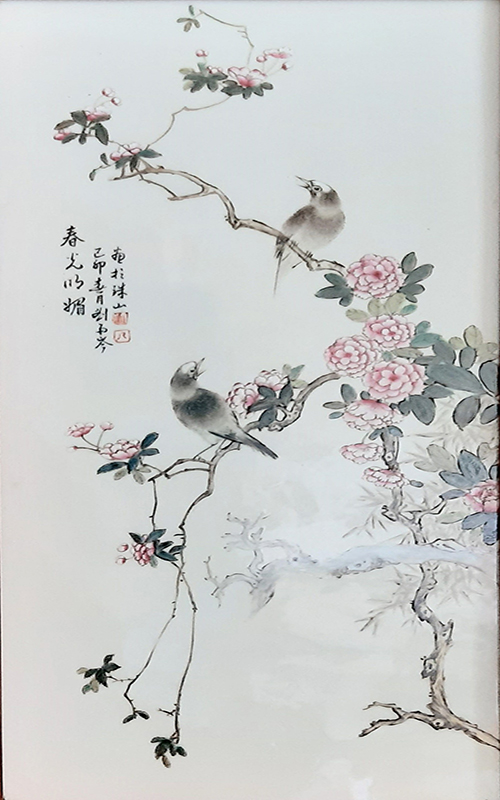 春光明媚
己卯春月劉雨岑
画於珠山